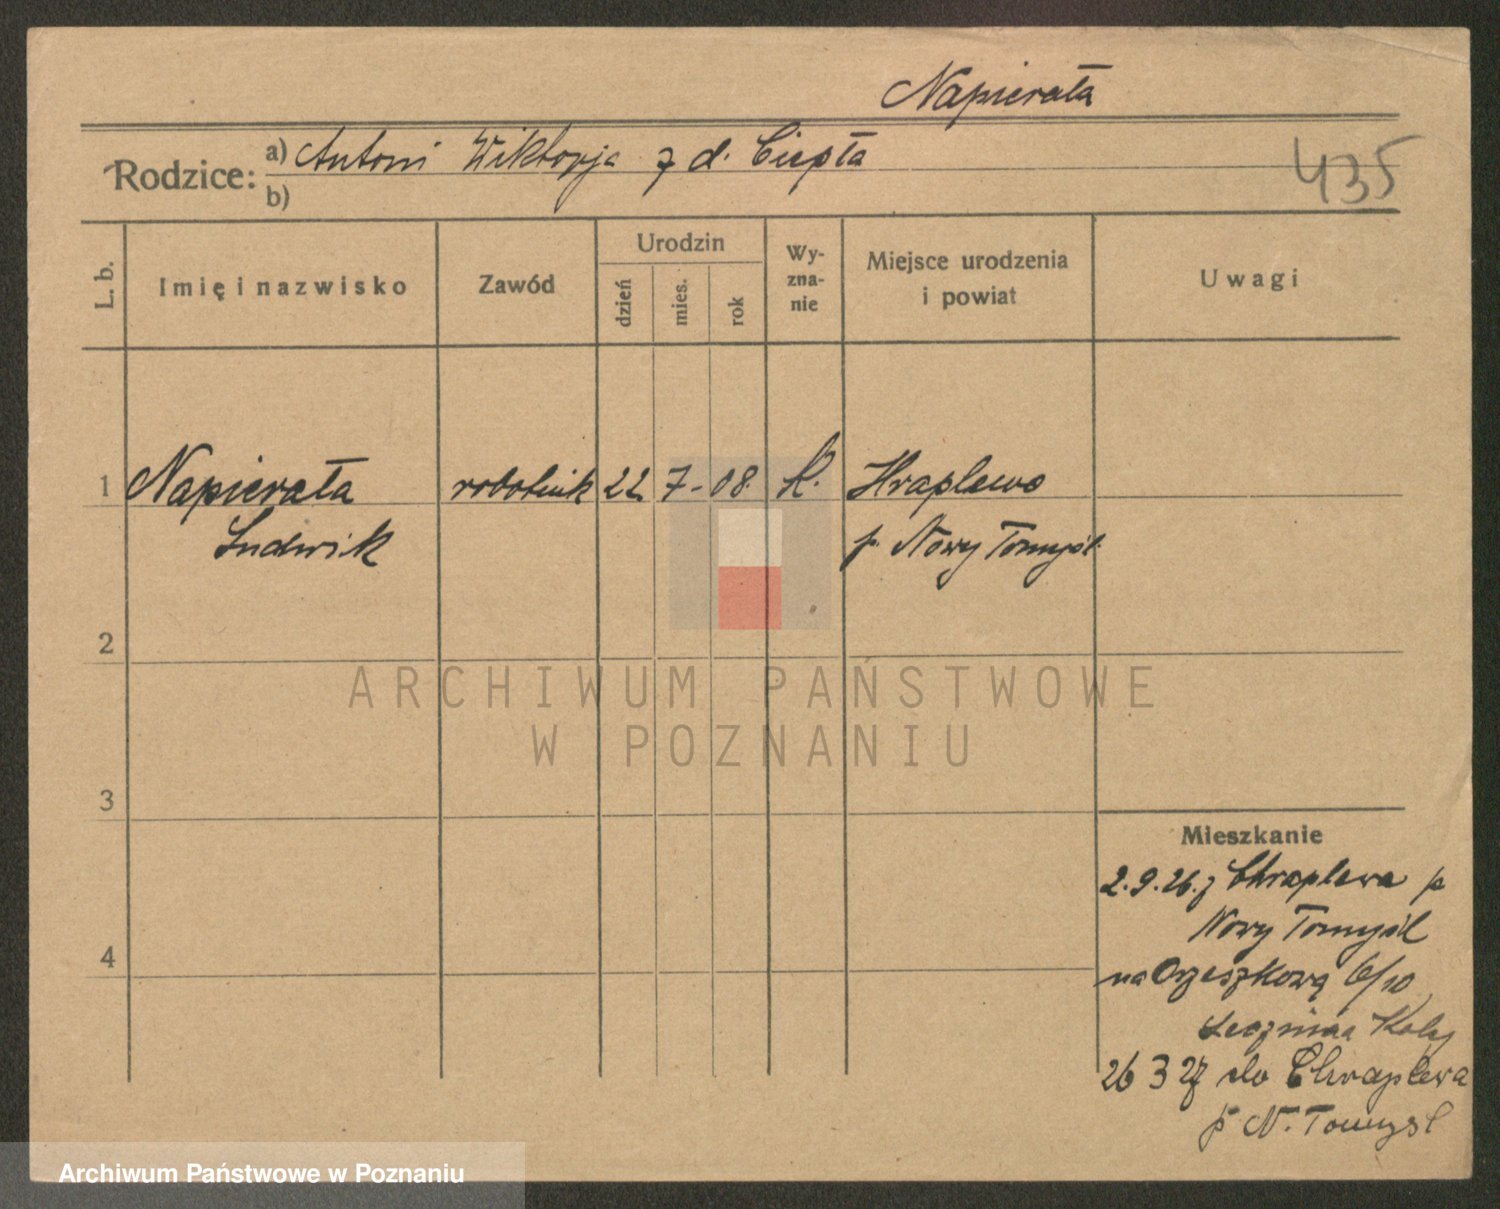 Napierała
Rodzice: a) Antoni Wiktorja z d. Ciepła
b)
435
L. b.
Imię i nazwisko
Zawód
Urodzin
dzień
mies.
rok
Wy-
zna-
nie
Miejsce urodzenia
i powiat
Uwagi
1 Napierała robotnik 22 7- 08. k. Hraplewo
Ludwik p. Nowy Tomyśl.
2
3
4
Mieszkanie
2.9.26. z Chraplewa p
Nowy Tomyśl
na Orzeszkową 6/10
26 3 27 do Chraplewa
p N. Tomysl
ARCHIWUM PAŃSTWOWE
W POZNANIU
Archiwum Państwowe w Poznaniu